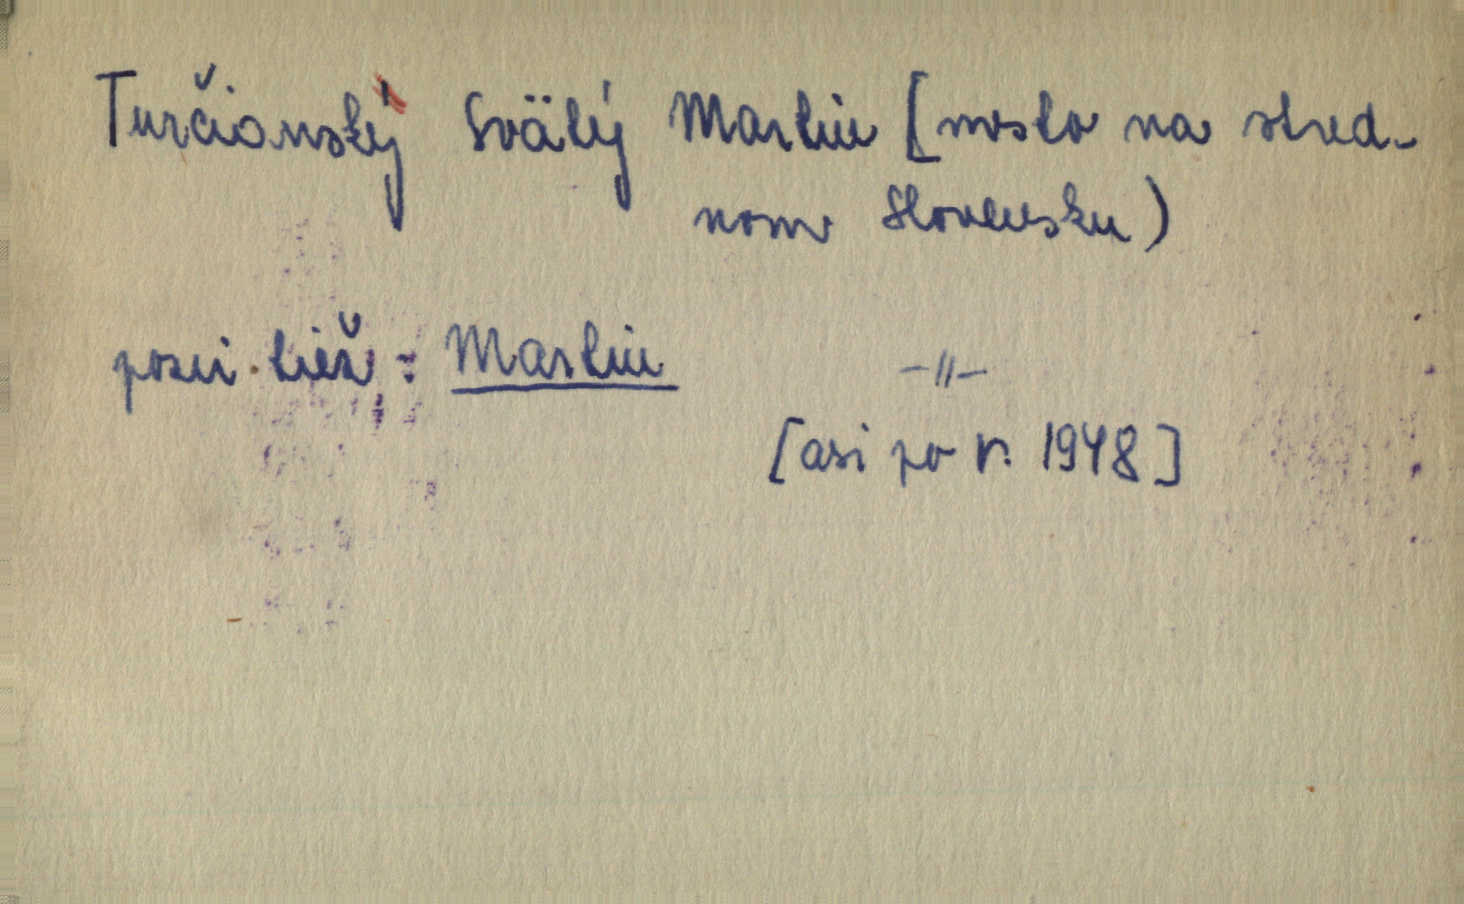 Turčianský Svätý Martin [mesto na stred-
nom Slovensku)
pozri tiež: Martin -11-
[asi po r. 1948]